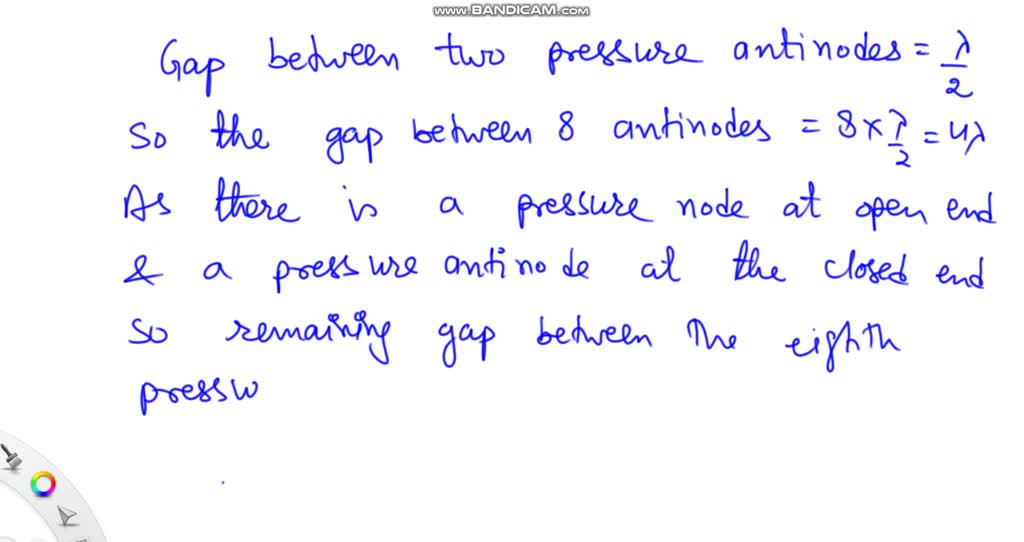 www.BANDICAM.com
Gap between two pressure antinodes = λ/2
So the gap between 8 antinodes = 8 × λ/2 = 4λ
As there is a pressure node at open end
& a pressure antinode at the closed end
so remaining gap between the eighth
pressu